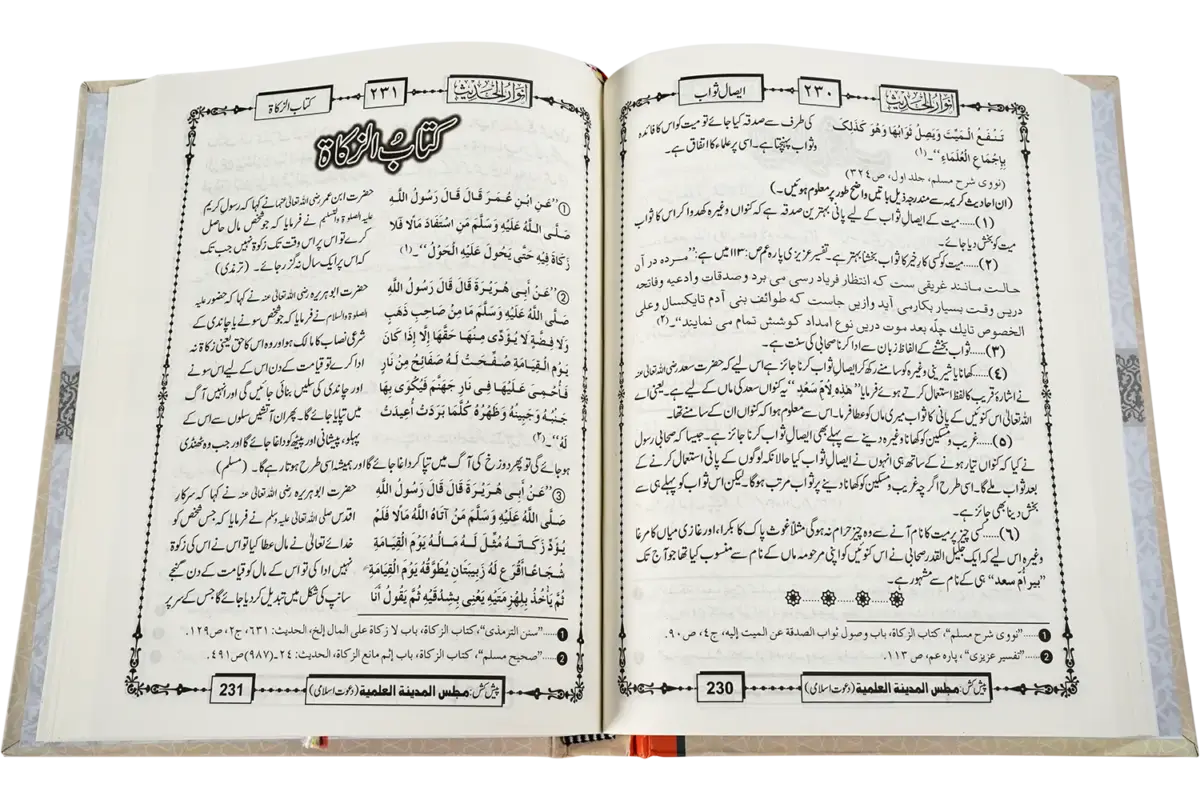 انوار الحدیث ۲۳۰ ایصال ثواب
تَنْفَعُ الْمَيِّتَ وَيَصِلُ ثَوَابُهَا وَهُوَ كَذٰلِكَ
بِاِجْمَاعِ الْعُلَمَاءِ‘‘۔(۱)
(نووی شرح مسلم، جلد اول، ص۳۲۴)
کی طرف سے صدقہ کیا جائے تو میت کو اس کا فائدہ
وثواب پہنچتا ہے۔ اسی پر علماء کا اتفاق ہے۔
(ان احادیث کریمہ سے مندرجہ ذیل باتیں واضح طور پر معلوم ہوئیں۔)
(۱)......میت کے ایصالِ ثواب کے لیے پانی بہترین صدقہ ہے کہ کنواں وغیرہ کھدوا کر اس کا ثواب
میت کو بخش دیا جائے۔
(۲)......میت کو کسی کارِ خیر کا ثواب بخشنا بہتر ہے۔ تفسیر عزیزی پارہ عم ص:۱۱۳ میں ہے: ’’مردہ در آن
حالت مانند غریقی ست که انتظار فریاد رسی می برد وصدقات وادعیه وفاتحه
دریں وقت بسیار بکارمی آید وازیں جاست که طوائف بنی آدم تایکسال وعلی
الخصوص تایك چلّه بعد موت دریں نوع امداد کوشش تمام می نمایند‘‘۔(۲)
(۳)......ثواب بخشنے کے الفاظ زبان سے ادا کرنا صحابی کی سنت ہے۔
(۴)......کھانا یا شیرینی وغیرہ کو سامنے رکھ کر ایصالِ ثواب کرنا جائز ہے اس لیے کہ حضرت سعد رضی اللہ تعالیٰ عنہ
نے اشارۂ قریب کا لفظ استعمال کرتے ہوئے فرمایا ’’هٰذِهِ لِاُمِّ سَعْدٍ‘‘ یہ کنواں سعد کی ماں کے لیے ہے۔ یعنی اے
اللہ تعالیٰ اس کنوئیں کے پانی کا ثواب میری ماں کو عطا فرما۔ اس سے معلوم ہوا کہ کنواں ان کے سامنے تھا۔
(۵)......غریب و مسکین کو کھانا وغیرہ دینے سے پہلے بھی ایصالِ ثواب کرنا جائز ہے۔ جیسا کہ صحابی رسول
نے کیا کہ کنواں تیار ہونے کے ساتھ ہی انہوں نے ایصالِ ثواب کیا حالانکہ لوگوں کے پانی استعمال کرنے کے
بعد ثواب ملے گا۔ اسی طرح اگرچہ غریب و مسکین کو کھانا دینے پر ثواب مرتب ہوگا۔ لیکن اس ثواب کو پہلے ہی سے
بخش دینا بھی جائز ہے۔
(۶)......کسی چیز پر میت کا نام آنے سے وہ چیز حرام نہ ہوگی مثلاً غوث پاک کا بکرا، اور غازی میاں کا مرغا
وغیرہ اس لیے کہ ایک جلیل القدر صحابی نے اس کنوئیں کو اپنی مرحومہ ماں کے نام سے منسوب کیا تھا جو آج تک
’’بیر اُم سعد‘‘ ہی کے نام سے مشہور ہے۔
1......’’نووی شرح مسلم‘‘، کتاب الزکاة، باب وصول ثواب الصدقة عن المیت إلیه، ج٤، ص٩٠.
2......’’تفسیر عزیزی‘‘، پارہ عم، ص۱۱۳.
پیش کش: مجلس المدینة العلمیة (دعوت اسلامی) 230
انوار الحدیث ۲۳۱ کتاب الزکاۃ
کتاب الزکاۃ
①’’عَنِ ابْنِ عُمَرَ قَالَ قَالَ رَسُولُ اللّٰهِ
صَلَّى اللّٰهُ عَلَيْهِ وَسَلَّمَ مَنِ اسْتَفَادَ مَالًا فَلَا
زَكَاةَ فِيهِ حَتَّى يَحُولَ عَلَيْهِ الْحَوْلُ‘‘۔(۱)
حضرت ابن عمر رضی اللہ تعالیٰ عنہما نے کہا کہ رسولِ کریم
علیہ الصلوٰۃ والتسلیم نے فرمایا کہ جو شخص مال حاصل
کرے تو اس پر اس وقت تک زکوٰۃ نہیں جب تک
کہ اس پر ایک سال نہ گزر جائے۔ (ترمذی)
②’’عَنْ أَبِي هُرَيْرَةَ قَالَ قَالَ رَسُولُ اللّٰهِ
صَلَّى اللّٰهُ عَلَيْهِ وَسَلَّمَ مَا مِنْ صَاحِبِ ذَهَبٍ
وَلَا فِضَّةٍ لَا يُؤَدِّي مِنْهَا حَقَّهَا إِلَّا إِذَا كَانَ
يَوْمُ الْقِيَامَةِ صُفِّحَتْ لَهُ صَفَائِحُ مِنْ نَارٍ
فَأُحْمِيَ عَلَيْهَا فِي نَارِ جَهَنَّمَ فَيُكْوَى بِهَا
جَنْبُهُ وَجَبِينُهُ وَظَهْرُهُ كُلَّمَا بَرَدَتْ أُعِيدَتْ
لَهُ‘‘۔(۲)
حضرت ابوہریرہ رضی اللہ تعالیٰ عنہ نے کہا کہ حضور علیہ
الصلوٰۃ والسلام نے فرمایا کہ جو شخص سونے یا چاندی کے
شرعی نصاب کا مالک ہو اور وہ اس کا حق یعنی زکوٰۃ نہ
ادا کرے تو قیامت کے دن اس کے لیے اس سونے
اور چاندی کی سلیں بنائی جائیں گی اور انہیں آگ
میں تپایا جائے گا۔ پھر ان آتشیں سلوں سے اس کے
پہلو، پیشانی اور پیٹھ کو داغا جائے گا اور جب وہ ٹھنڈی
ہوجائے گی تو پھر دوزخ کی آگ میں تپا کر داغا جائے گا اور ہمیشہ اسی طرح ہوتا رہے گا۔ (مسلم)
③’’عَنْ أَبِي هُرَيْرَةَ قَالَ قَالَ رَسُولُ اللّٰهِ
صَلَّى اللّٰهُ عَلَيْهِ وَسَلَّمَ مَنْ آتَاهُ اللّٰهُ مَالًا فَلَمْ
يُؤَدِّ زَكَاتَهُ مُثِّلَ لَهُ مَالُهُ يَوْمَ الْقِيَامَةِ
شُجَاعًا أَقْرَعَ لَهُ زَبِيبَتَانِ يُطَوَّقُهُ يَوْمَ الْقِيَامَةِ
ثُمَّ يَأْخُذُ بِلِهْزِمَتَيْهِ يَعْنِي بِشِدْقَيْهِ ثُمَّ يَقُولُ أَنَا
حضرت ابوہریرہ رضی اللہ تعالیٰ عنہ نے کہا کہ سرکارِ
اقدس صلی اللہ تعالیٰ علیہ وسلم نے فرمایا کہ جس شخص کو
خدائے تعالیٰ نے مال عطا کیا تو اس نے اس کی زکوٰۃ
نہیں ادا کی تو اس کے مال کو قیامت کے دن گنجے
سانپ کی شکل میں تبدیل کردیا جائے گا جس کے سر پر
1......’’سنن الترمذی‘‘، کتاب الزکاة، باب لا زکاة علی المال إلخ، الحدیث: ٦٣١، ج٢، ص١٢٩.
2......’’صحیح مسلم‘‘، کتاب الزکاة، باب إثم مانع الزکاة، الحدیث: ٢٤۔(٩٨٧)ص٤٩١.
پیش کش: مجلس المدینة العلمیة (دعوت اسلامی) 231